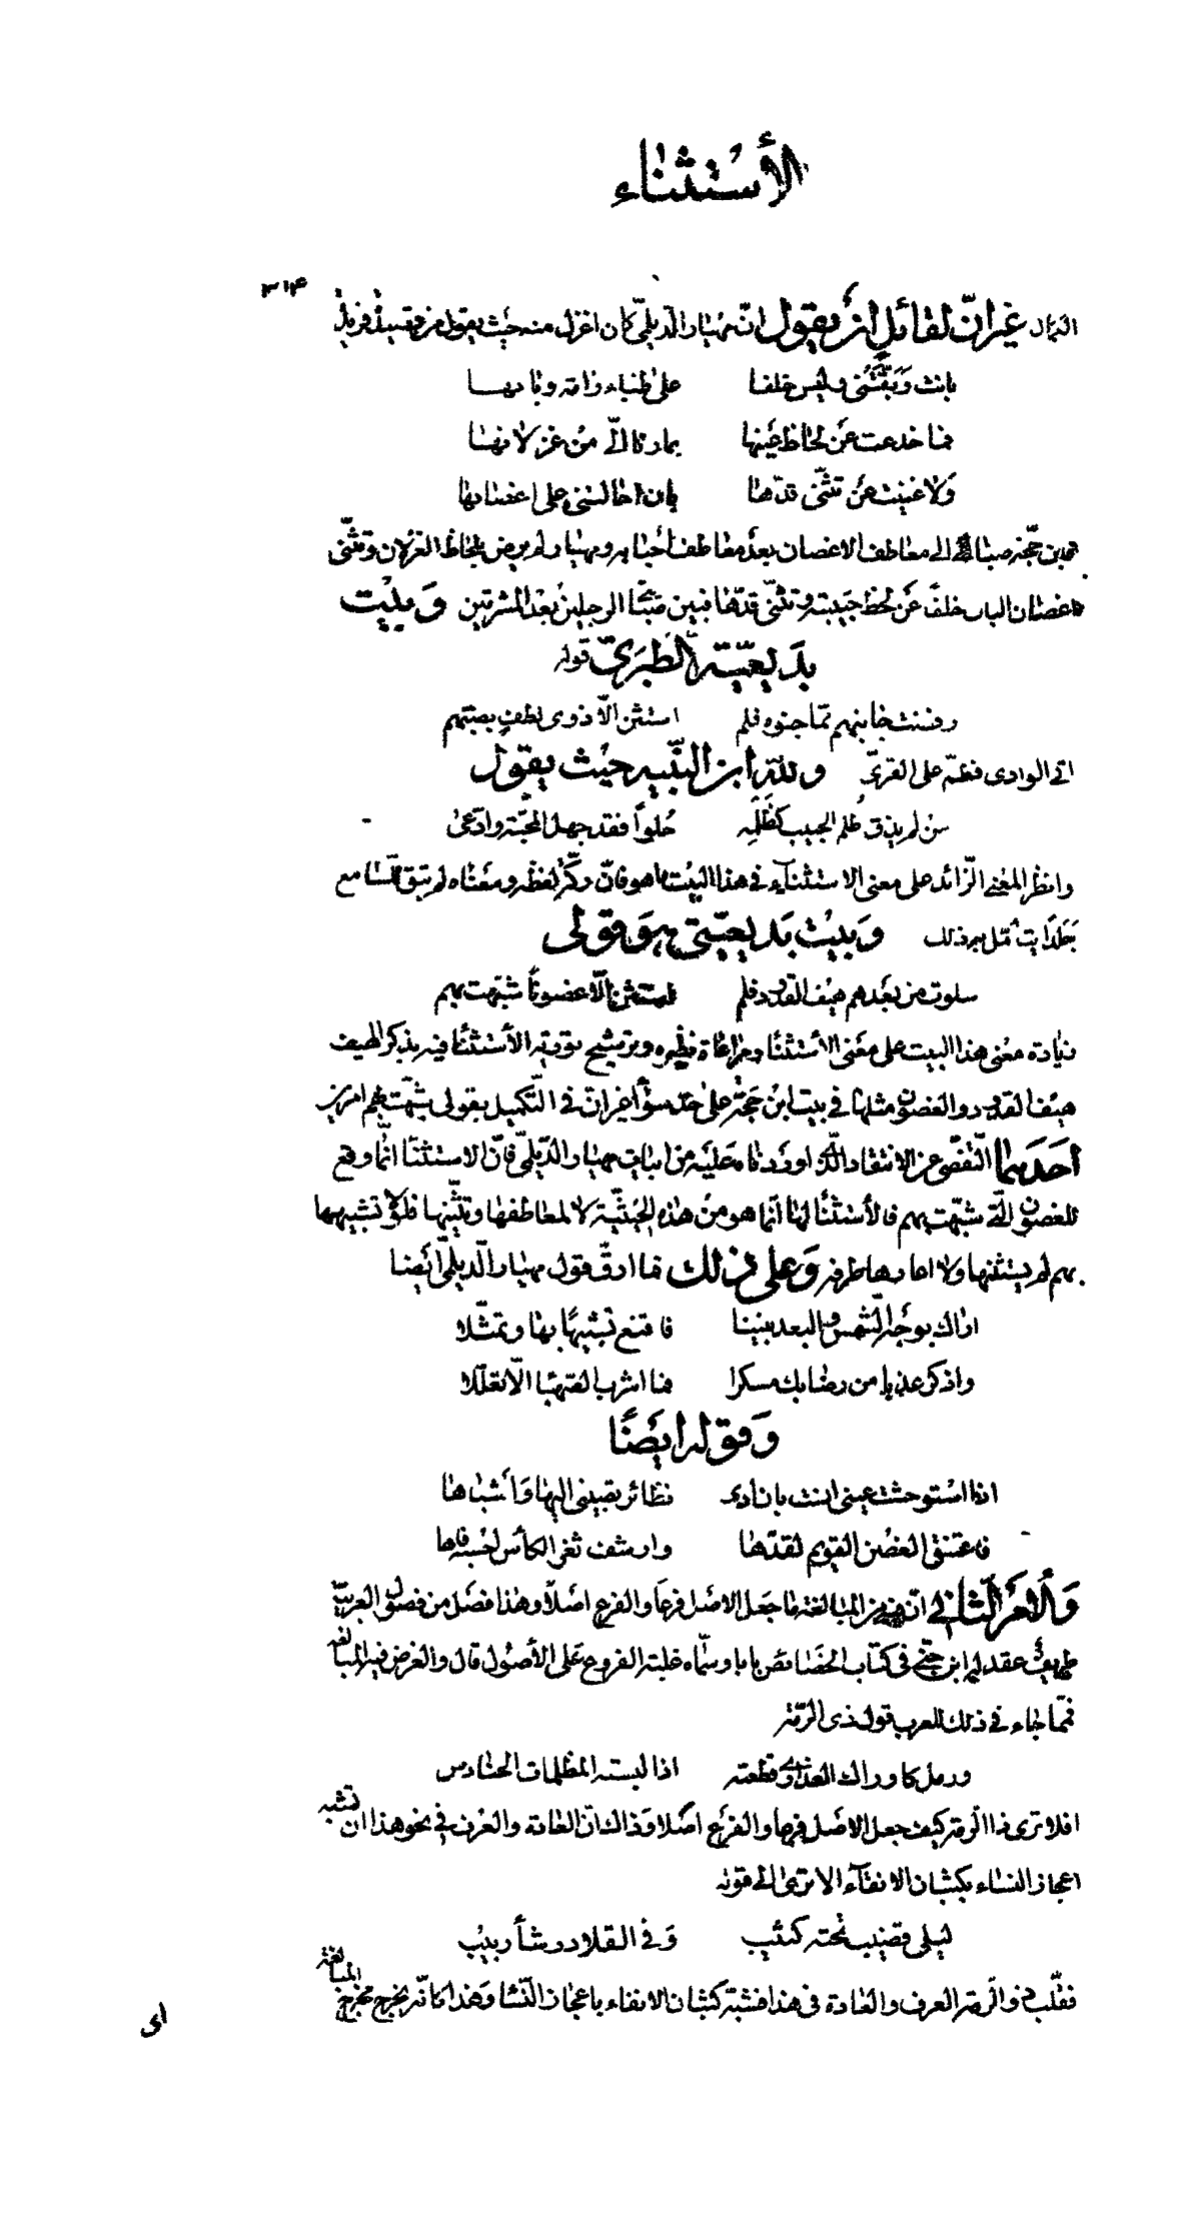 الأستثناء
٣١۴
الكمال غير انّ لقائل ان يقول انّ مهيار الديلمىّ كان اغزل منه حيث يقول من قصيدة فريدة
بانت وبقّتنى وليس خلفا على ظباء رامة وبانها
فما خدعت عن لحاظ عينها بما رنا الىّ من غزلانها
ولا غنيت عن تثنّى قدّها بان اطال لتنى على اغصانها
فهذا ابن حجّة صبا الى معاطف الاغصان بعد معاطف احبابه ومهيار لم يرض بلحاظ الغزلان وتثنّى
اغصان البان خلفا عن لحظ حبيبته وتثنّى قدّها فبين صبا الرجلين بعد المشرقين وبيت
بديعيّة الطبرىّ قوله
رفضت جانبهم ممّا جنوه فلم استثن الّا ذوى لطف بصبّهم
اتى الوادى فطمّ على القرىّ وللّه ابن النّبيه حيث يقول
من لم يذق ظلم الحبيب كظلمه حلوا فقد جهل المحبّة وادّعى
وانظر المعنى الزّائد على معنى الاستثنآء فى هذا البيت ما هو فانّ ركّة لفظه ومعناه لم تبق للسّامع
جلدا يتأمّل به ذلك وبيت بديعيّتى هو قولى
سلوت من بعدهم هيف القدود فلم استثن الّا غصونا شبّهت بهم
زيادة معنى هذا البيت على معنى الأستثناء ومراعاة نظيره وترشيح تورية الأستثناء فيه بذكر الهيف
هيف القدود والغصون مثلها فى بيت ابن حجّة على حدّ سوآء غير انّ فى التّكميل بقولى شبّهت بهم امرين
احدهما التّفصّى عن الانتقاد الّذى اوردناه عليه من ابيات مهيار الدّيلمىّ فانّ الاستثناء انّما وقع
للغصون الّتى شبّهت بهم فالأستثناء لها انّما هو من هذه الحيثيّة لا لمعاطفها وتثنّيها فلولا تشبيهها
بهم لم يستثنها ولا اعارها طرفه وعلى ذلك فما ارقّ قول مهيار الدّيلمىّ ايضا
اراك بوجه الشّمس والبعد بيننا فاقنع تشبيها بها وتمثّلا
واذكر عذبا من رضابك مسكرا فما اشرب الصّهبا الّا تعلّلا
وقوله ايضا
اذا استوحشت عينى انست بان ارى نظائر تصبينى اليها وأشباها
فاعتنق الغصن القويم لقدّها وارشف ثغر الكأس احسبه فاها
والأمر الثّانى انّ فيه من المبالغة ما جعل الاصل فرعا والفرع اصلا وهذا فصل من فصول العربيّة
طريف عقد له ابن جنّى فى كتاب الخصائص بابا وسمّاه غلبة الفروع على الأصول قال والغرض فيه المبالغة
فممّا جاء فى ذلك للعرب قول ذى الرّمّة
ورمل كاوراك العذارى قطعته اذا لبسته المظلمات الحنادس
افلا ترى ذا الرّمّة كيف جعل الاصل فرعا والفرع اصلا وذاك انّ العادة والعرف فى نحو هذا ان تشبه
اعجاز النساء بكثبان الانقآء الا ترى الى قوله
ليلى قضيب تحته كثيب وفى القلاد رشأ ربيب
فقلّب ذو الرّمّة العرف والعادة فى هذا فشبّه كثبان الانقاء باعجاز النّساء وهذا كأنّه يخرج مخرج المبالغة
اى